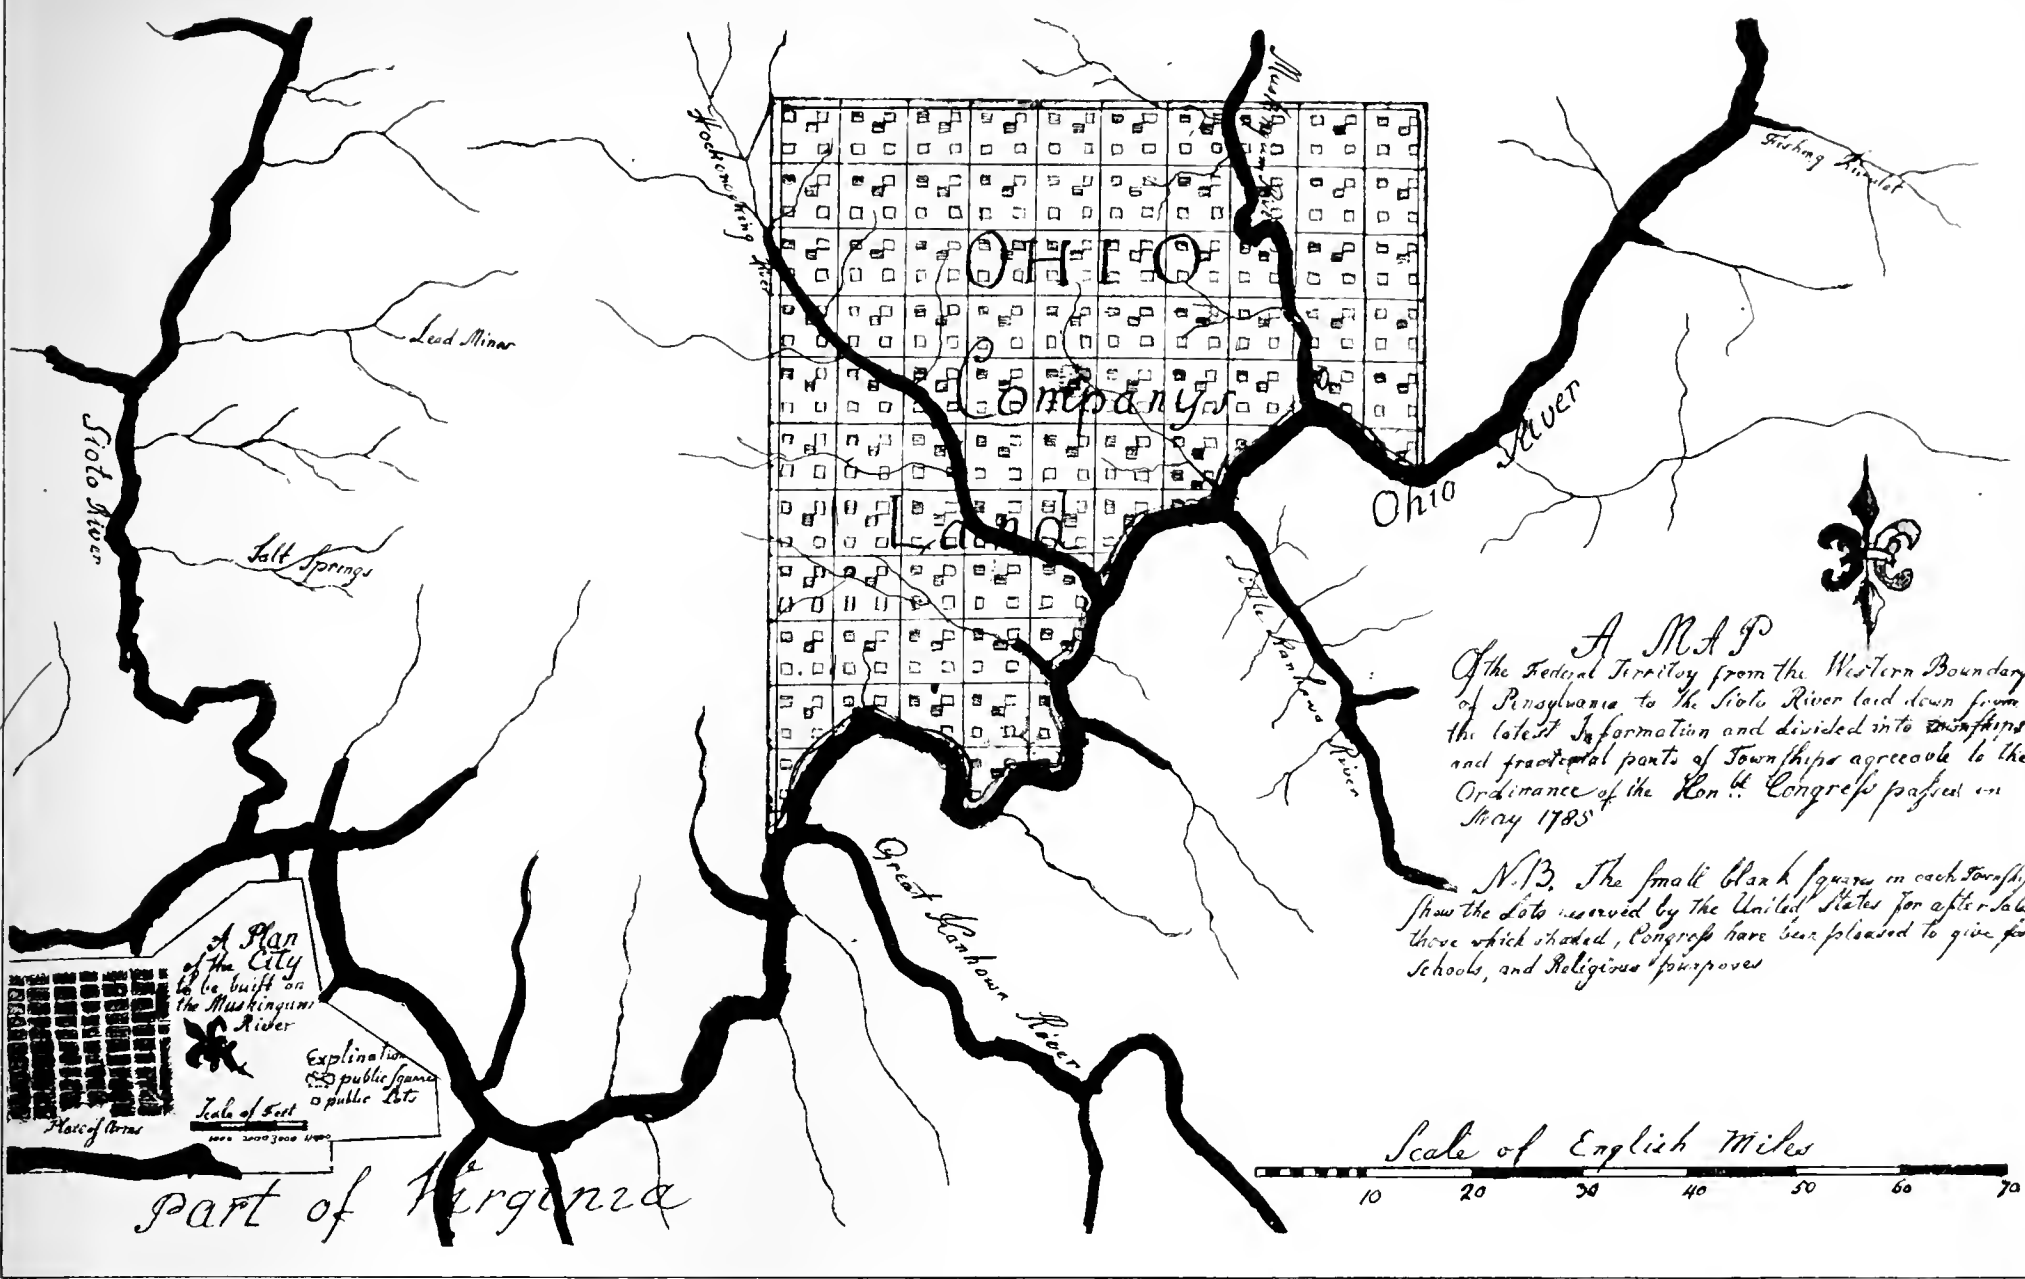 Hockhocking River
Muskingum River
Fishing Rivulet
OHIO
Companys
Land
Lead Mines
Sioto River
Salt Springs
Ohio River
Little Kanhawa River
Great Kanhawa River
A MAP
Of the Federal Territoy from the Western Boundary
of Pensylvania to the Sioto River laid down from
the latest Information and divided into Townships
and fractional parts of Townships agreeable to the
Ordinance of the Honble Congress passed in
May 1785
N.B. The small blank squares in each Township
shew the Lots reserved by the United States for after Sale
those which shaded, Congress have been pleased to give for
Schools, and Religious purposes
A Plan
of the City
to be built on
the Muskingum
River
Explination
public Squares
public Lots
Scale of Feet
1000 2000 3000 4000
Part of Virginia
Scale of English Miles
10 20 30 40 50 60 70